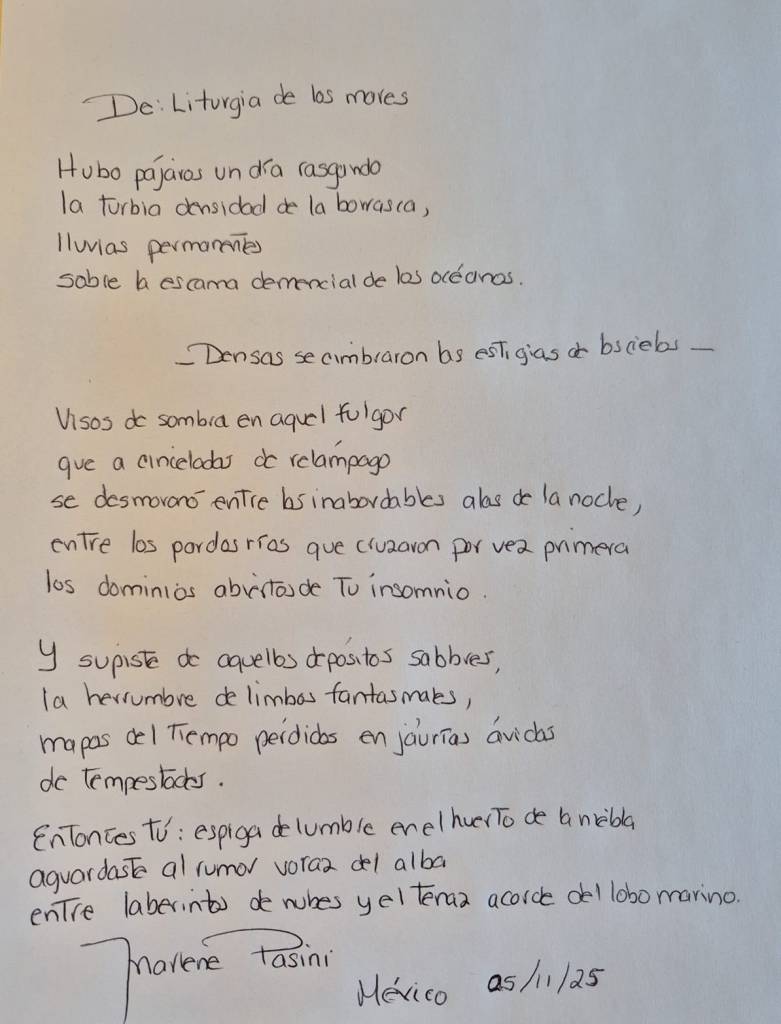 De: Liturgia de los mares
Hubo pájaros un día rasgando
la turbia densidad de la borrasca,
lluvias permanentes
sobre la escama demencial de los océanos.
— Densas se cimbraron las estigias de los cielos —
Visos de sombra en aquel fulgor
que a cinceladas de relámpago
se desmoronó entre las inabordables alas de la noche,
entre los pardos ríos que cruzaron por vez primera
los dominios abiertos de Tu insomnio.
Y supiste de aquellos depósitos salobres,
la herrumbre de limbos fantasmales,
mapas del Tiempo perdidos en jaurías ávidas
de Tempestades.
Entonces Tú: espiga de lumbre en el huerto de la niebla
aguardaste al rumor voraz del alba
entre laberintos de nubes y el tenaz acorde del lobo marino.
Marlene Pasini
México 05/11/25